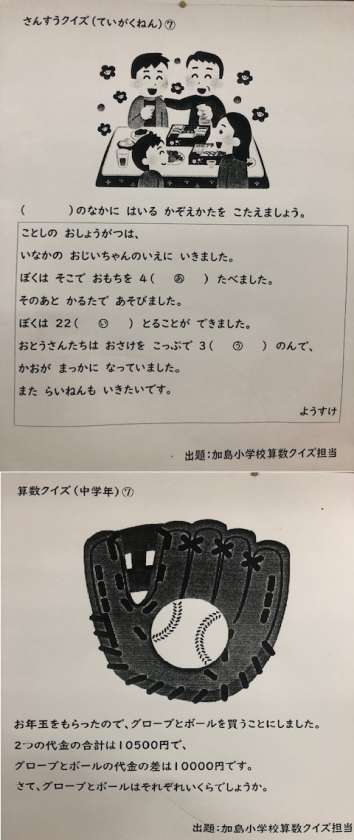 さんすうクイズ(ていがくねん)⑦
(　　　)のなかに はいる かぞえかたを こたえましょう。
ことしの おしょうがつは、
いなかの おじいちゃんのいえに いきました。
ぼくは そこで おもちを 4(　あ　) たべました。
そのあと かるたで あそびました。
ぼくは 22(　い　) とることが できました。
おとうさんたちは おさけを こっぷで 3(　う　) のんで、
かおが まっかに なっていました。
また らいねんも いきたいです。
ようすけ
出題:加島小学校算数クイズ担当
算数クイズ(中学年)⑦
お年玉をもらったので、グローブとボールを買うことにしました。
2つの代金の合計は10500円で、
グローブとボールの代金の差は10000円です。
さて、グローブとボールはそれぞれいくらでしょうか。
出題:加島小学校算数クイズ担当